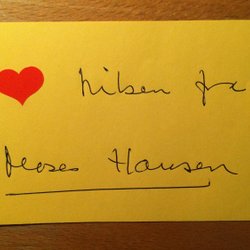 hilsen fra
Moses Hansen